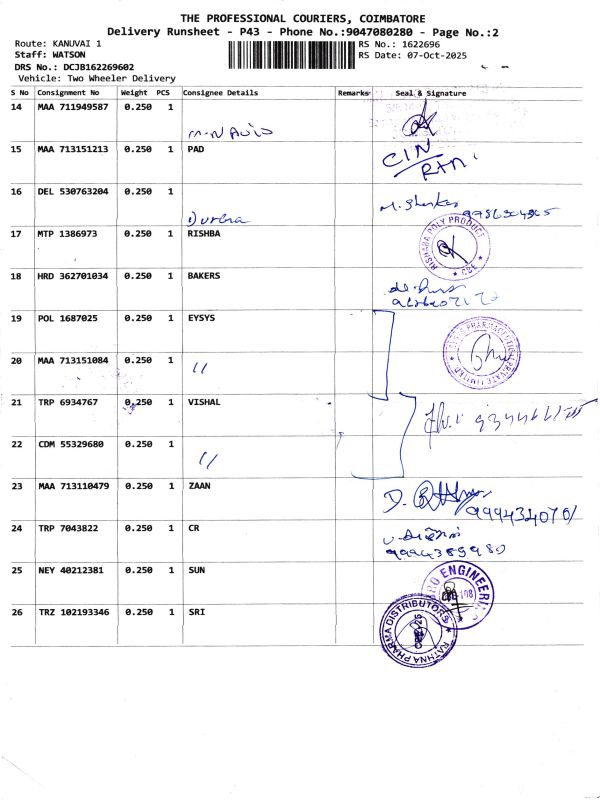 THE PROFESSIONAL COURIERS, COIMBATORE
Delivery Runsheet - P43 - Phone No.:9047080280 - Page No.:2
Route: KANUVAI 1
RS No.: 1622696
Staff: WATSON
RS Date: 07-Oct-2025
DRS No.: DCJB162269602
Vehicle: Two Wheeler Delivery
S No Consignment No Weight PCS Consignee Details Remarks Seal & Signature
14 MAA 711949587 0.250 1
15 MAA 713151213 0.250 1 PAD
CIN
16 DEL 530763204 0.250 1
Durga
17 MTP 1386973 0.250 1 RISHBA
RISHABA POLY PRODUCT
CBE
18 HRD 362701034 0.250 1 BAKERS
19 POL 1687025 0.250 1 EYSYS
PRIVATE LIMITED
20 MAA 713151084 0.250 1
"
21 TRP 6934767 0.250 1 VISHAL
22 CDM 55329680 0.250 1
"
23 MAA 713110479 0.250 1 ZAAN
D.
24 TRP 7043822 0.250 1 CR
9994389980
25 NEY 40212381 0.250 1 SUN
26 TRZ 102193346 0.250 1 SRI
RATHNA PHARMA DISTRIBUTORS